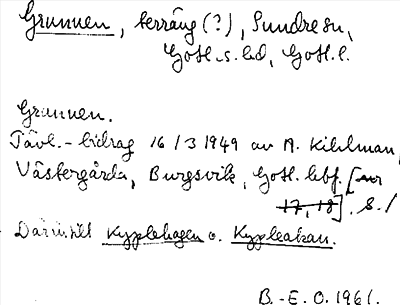 Grunnen, terräng (?), Sundre sn,
Gotl. s. hd, Gotl. l.
Grunnen.
Tävl.-bidrag 16/3 1949 av A. Kihlman,
Västergårda, Burgsvik, Gotl. lbf. [nr
17, 18]. S. 1
Därintill Kypplehagen o. Kyppleåkan.
B.-E. O. 1961.